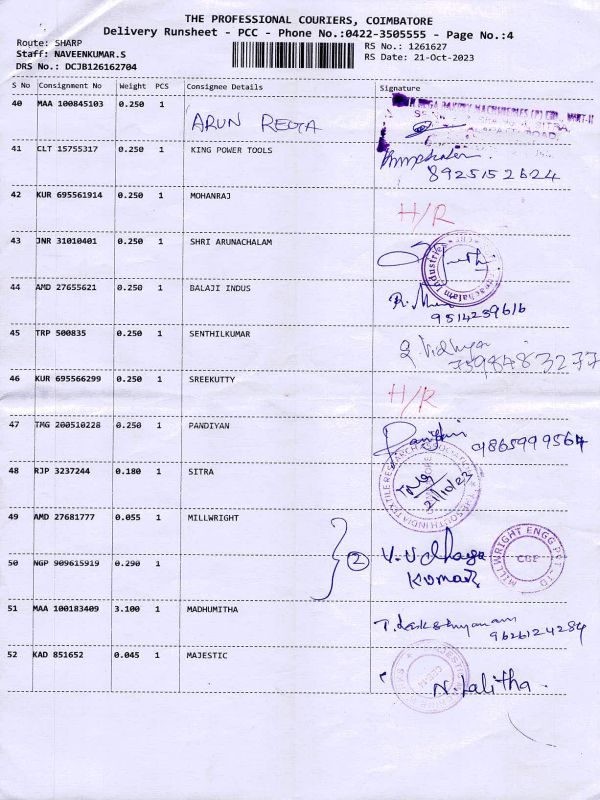 THE PROFESSIONAL COURIERS, COIMBATORE
Delivery Runsheet - PCC - Phone No.:0422-3505555 - Page No.:4
Route: SHARP
Staff: NAVEENKUMAR.S
DRS No.: DCJB126162704
RS No.: 1261627
RS Date: 21-Oct-2023
S No Consignment No Weight PCS Consignee Details Signature
40 MAA 100845103 0.250 1
ARUN REOTA
41 CLT 15755317 0.250 1 KING POWER TOOLS
8925152624
42 KUR 695561914 0.250 1 MOHANRAJ H/R
43 JNR 31010401 0.250 1 SHRI ARUNACHALAM
44 AMD 27655621 0.250 1 BALAJI INDUS
9514259616
45 TRP 500835 0.250 1 SENTHILKUMAR
Vidhya
7598483277
46 KUR 695566299 0.250 1 SREEKUTTY H/R
47 TMG 200510228 0.250 1 PANDIYAN 9865999564
48 RJP 3237244 0.180 1 SITRA
THE SOUTH INDIA TEXTILE RESEARCH ASSOCIATION
21/10/23
49 AMD 27681777 0.055 1 MILLWRIGHT
50 NGP 909615919 0.290 1
2 V.Udhaya
Kumar
MILLWRIGHT ENGG PVT LTD
CBE
51 MAA 100183409 3.100 1 MADHUMITHA
9626124284
52 KAD 851652 0.045 1 MAJESTIC
N. Lalitha